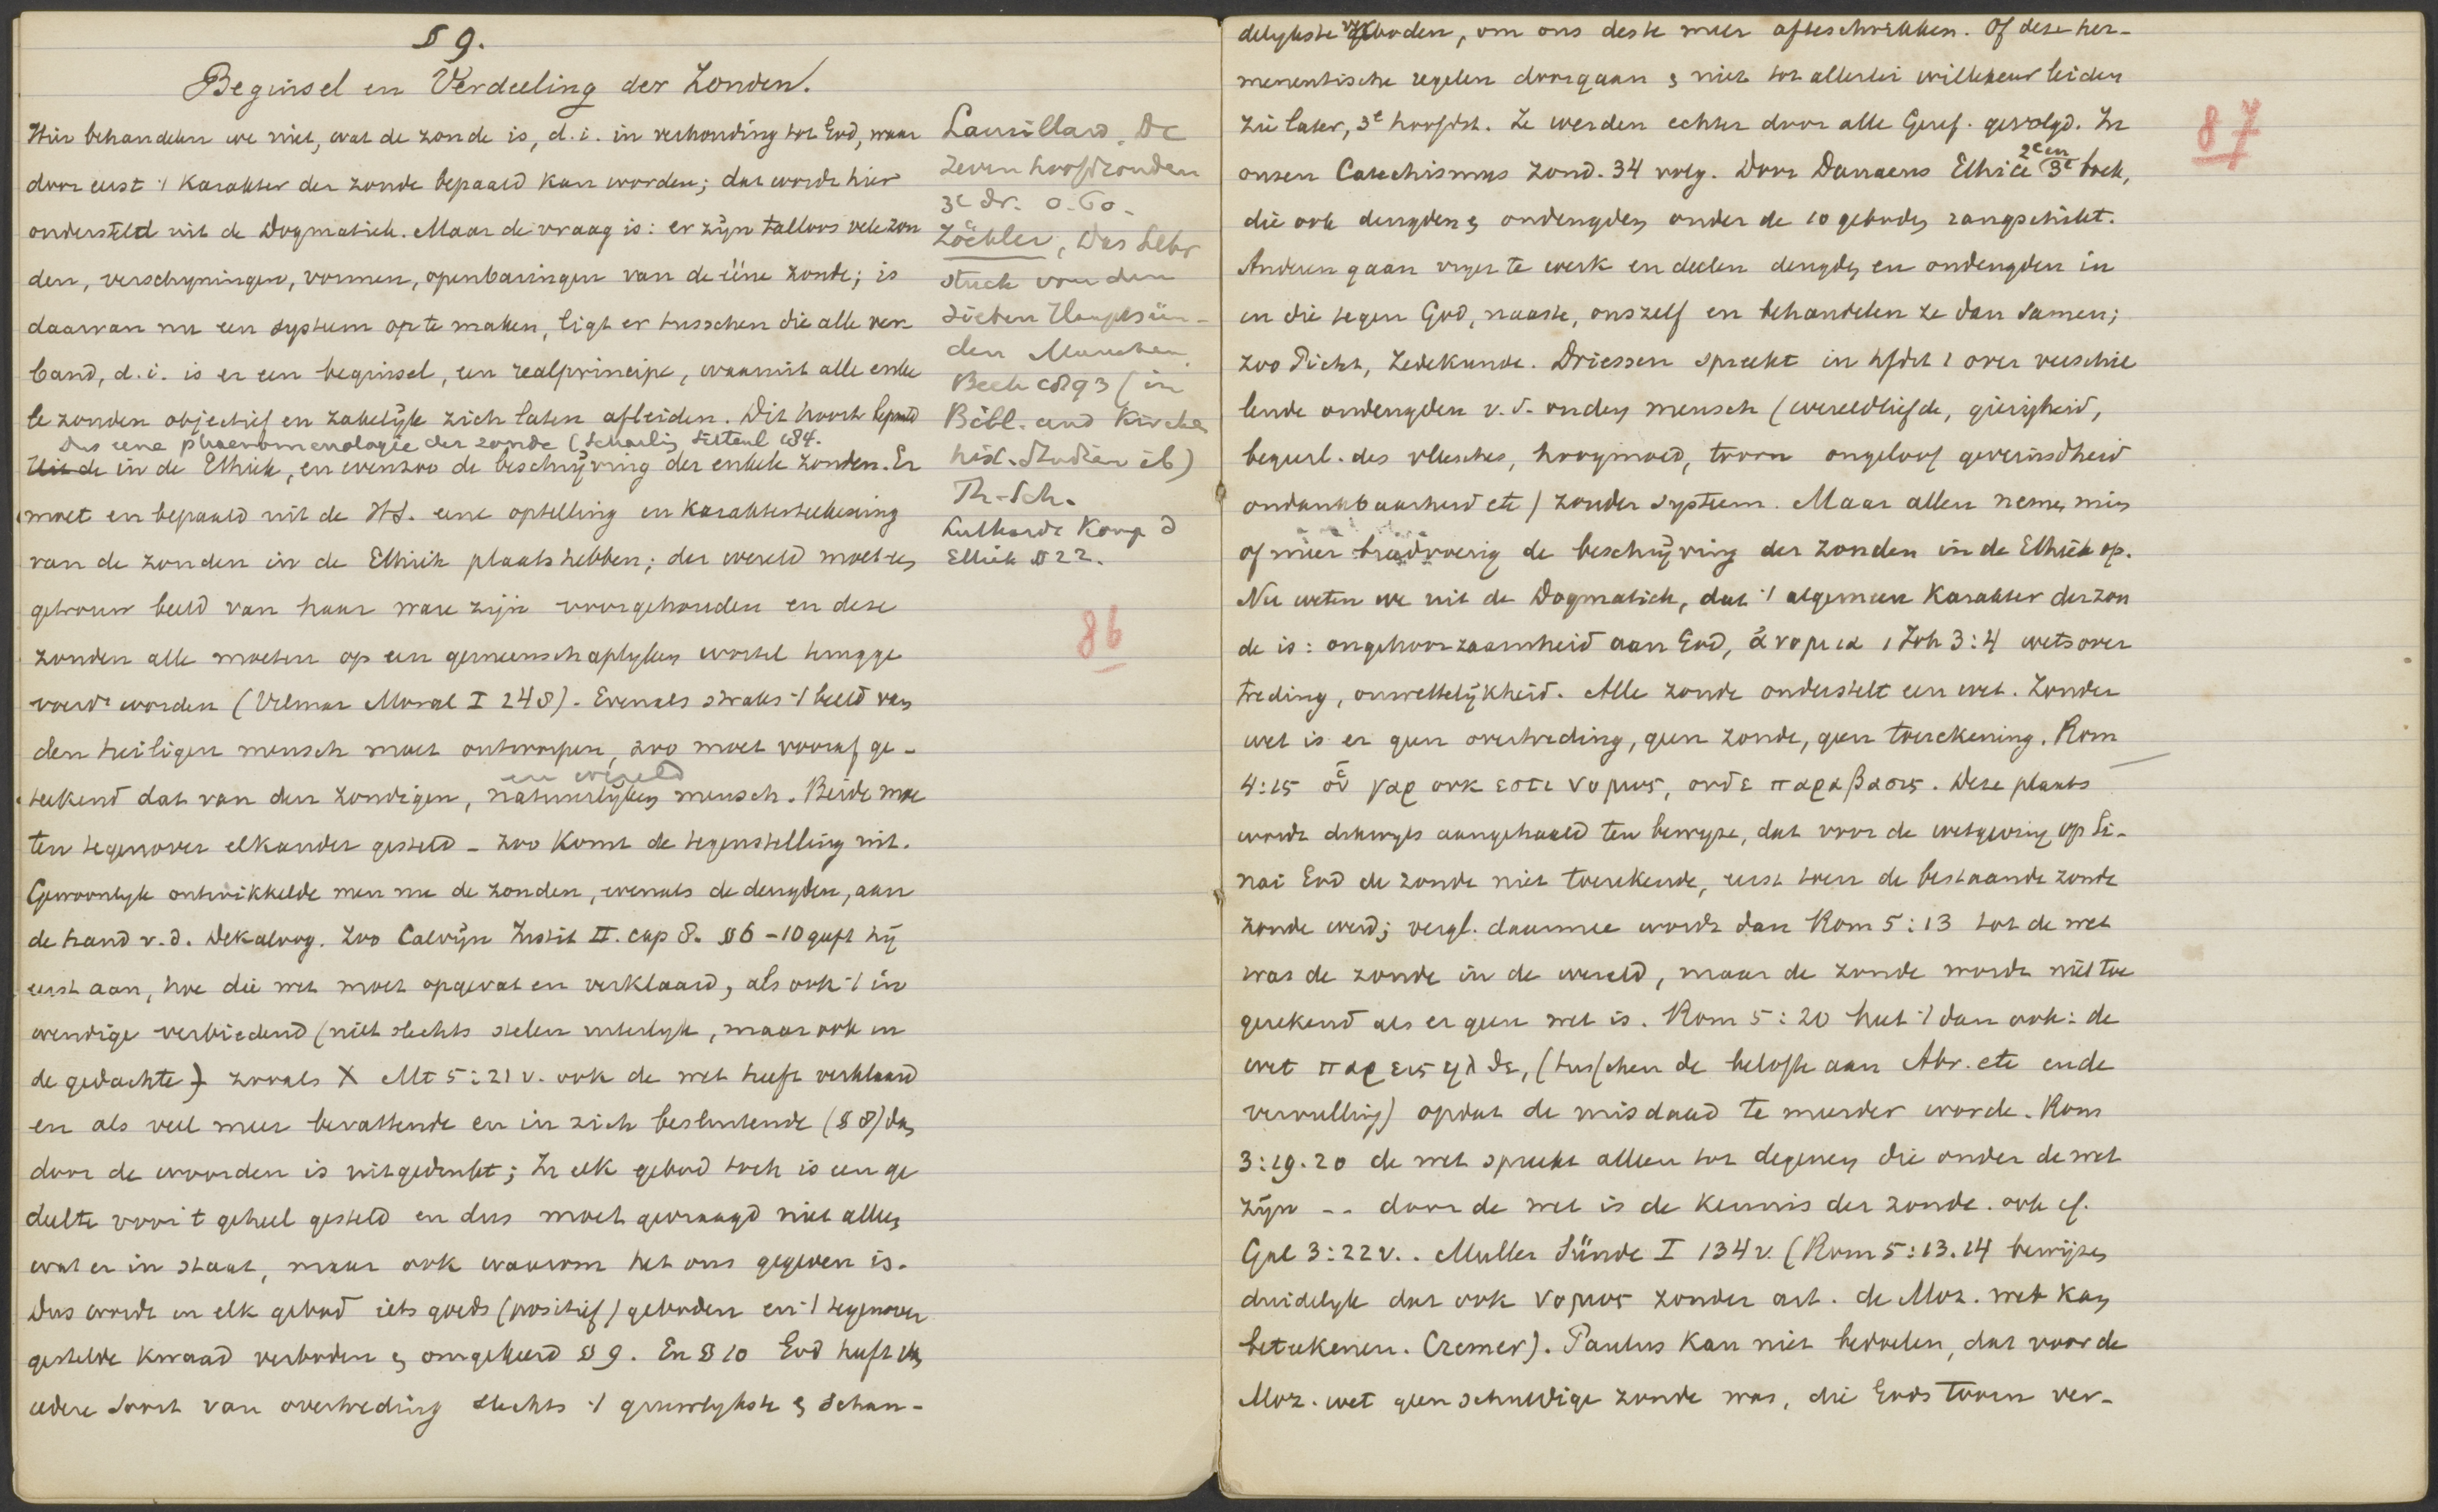 § 9.
Beginsel en Verdeeling der Zonden.
Hier behandelen we niet, wat de zonde is, d.i. in verhouding tot God, waar
door eerst 't karakter der zonde bepaald kan worden; dat wordt hier
ondersteld uit de Dogmatiek. Maar de vraag is: er zijn talloos vele zon
den, verschijningen, vormen, openbaringen van de ééne zonde; is
daarvan nu een systeem op te maken, ligt er tusschen die alle ver
band, d.i. is er een beginsel, een realprincipe, waaruit alle enke
le zonden objectief en zakelijk zich laten afleiden. Dit hoort bepaald
Dus eene phaenomenologie der zonde (Scharling 184.
Uit de in de Ethiek, en evenzoo de beschrijving der enkele zonden. Er
moet en bepaald uit de HS. eene optelling en karakterteekening
van de zonden in de Ethiek plaats hebben; der wereld moet een
getrouw beeld van haar ware zijn voorgehouden en deze
zonden alle moeten op een gemeenschaplyken wortel terugge
voerd worden (Vilmar Moral I 248). Evenals straks 't beeld van
den heiligen mensch moet ontworpen, zoo moet vooraf ge-
en wereld
teekend dat van den zondigen, natuurlijken mensch. Beide moe
ten tegenover elkander gesteld - zoo komt de tegenstelling uit.
Gewoonlyk ontwikkelde men nu de zonden, evenals de deugden, aan
de hand v.d. Dekaloog. Zoo Calvijn Instit II. cap 8. § 6-10 geeft hij
eerst aan, hoe die wet moet opgevat en verklaard, als ook 't in
wendige verbiedend (niet slechts stelen uiterlijk, maar ook in
de gedachte) zooals X Mt 5:21 v. ook de wet heeft verklaard
en als veel meer bevattende en in zich besluitende (§ 8) dan
door de woorden is uitgedrukt; In elk gebod toch is een ge
deelte voor 't geheel gesteld en dus moet gevraagd niet alleen
wat er in staat, maar ook waarom het ons gegeven is.
Dus wordt in elk gebod iets goeds (positief) geboden en 't tegenover
gestelde kwaad verboden en omgekeerd § 9. En § 10 God heeft van
iedere soort van overtreding slechts 't gruwlykste en schan-
Laurillard. De
zeven hoofdzonden
3e dr. 0.60.
Zöckler, Das Lehr
stück von den
sieben Hauptsün-
den München
Beck 1893 (in
Bibl. und Kirchen
hist. Studien ib)
Th. Sch.
Luthardt Komp d
Ethik § 22.
86
delykste verboden, om ons des te meer afteschrikken. Of deze her-
meneutische regelen doorgaan en niet tot allerlei willekeur leiden
zie later, 3e hoofdst. Ze werden echter door alle Geref. gevolgd. In
2e en
onzen Catechismus Zond. 34 volg. Door Danaeus Ethice 3e boek,
die ook deugden en ondeugden onder de 10 geboden rangschikt.
Anderen gaan vryer te werk en deelen deugden en ondeugden in
in die tegen God, naaste, onszelf en behandelen ze dan samen;
zoo Pictet, Zedekunde. Driessen spreekt in hfdst 1 over verschil
lende ondeugden v.d. ouden mensch (wereldliefde, gierigheid,
begeerl. des vleesches, hoogmoed, toorn ongeloof geveinsdheid
ondankbaarheid etc) zonder systeem. Maar allen nemen min
of meer breedvoerig de beschrijving der zonden in de Ethiek op.
Nu weten we uit de Dogmatiek, dat 't algemeen karakter der zon
de is: ongehoorzaamheid aan God, ἀνομια 1 Joh 3:4 wetsover
treding, onwettelijkheid. Alle zonde onderstelt een wet. Zonder
wet is er geen overtreding, geen zonde, geen toerekening. Rom
4:15 οὑ γαρ ουκ εστι νομος, ουδε παραβασις. Deze plaats
wordt dikwyls aangehaald ten bewyze, dat voor de wetgeving op Si-
nai God de zonde niet toerekende, eerst toen de bestaande zonde
zonde werd; vergl. daarmee wordt dan Rom 5:13 tot de wet
was de zonde in de wereld, maar de zonde wordt niet toe
gerekend als er geen wet is. Rom 5:20 heet 't dan ook: de
wet παρεισηλθε, (tusschen de belofte aan Abr. etc en de
vervulling) opdat de misdaad te meerder worde. Rom
3:19.20 de wet spreekt alleen tot degenen die onder de wet
zijn -- door de wet is de kennis der zonde. ook cf.
Gal 3:22 v.. Muller Sünde I 134 v. (Rom 5:13.14 bewijzen
duidelyk dat ook νομος zonder art. de Moz. wet kan
beteekenen. Cremer). Paulus kan niet bedoelen, dat voor de
Moz. wet geen schuldige zonde was, die Gods toorn ver-
87